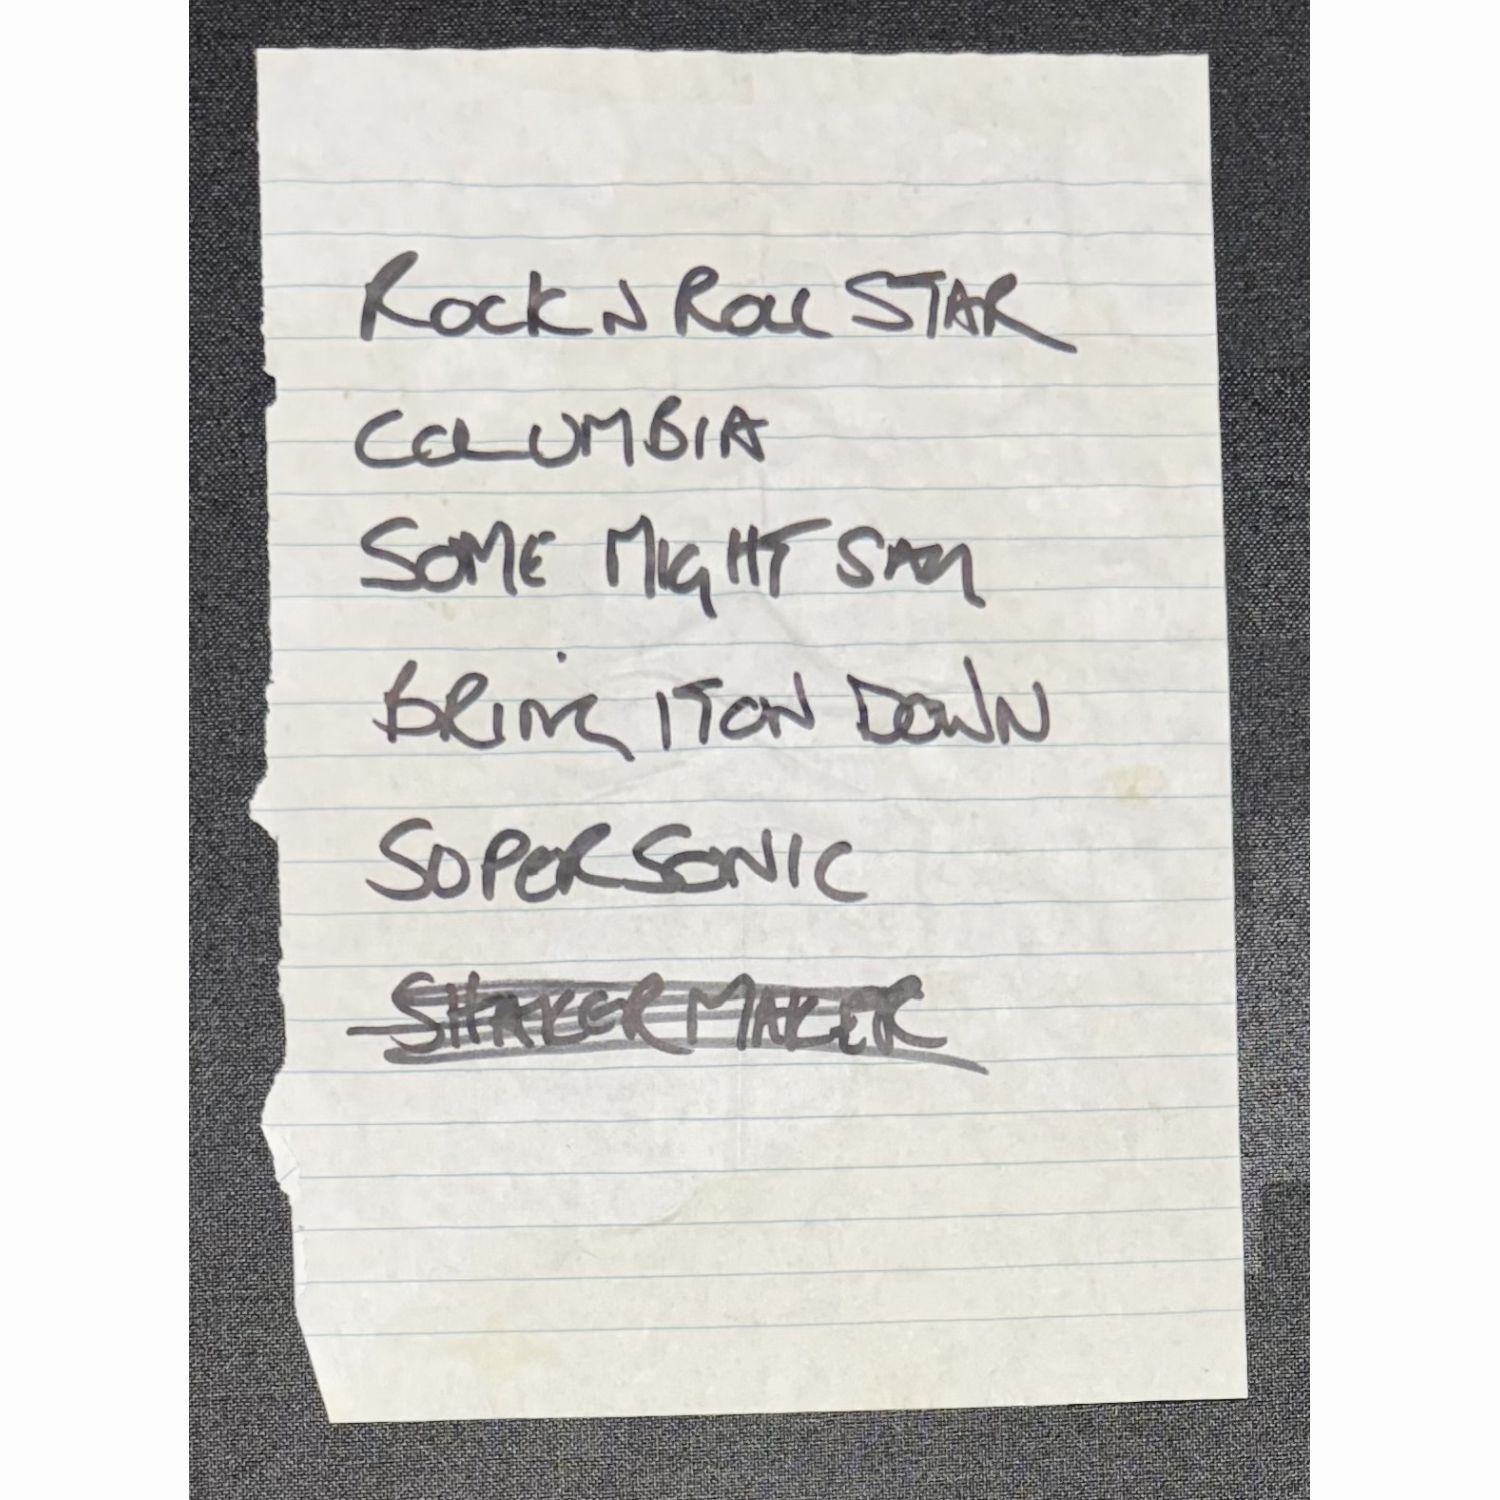 ROCK N ROLL STAR
COLUMBIA
SOME MIGHT SAY
BRING IT ON DOWN
SUPERSONIC
SHAKERMAKER